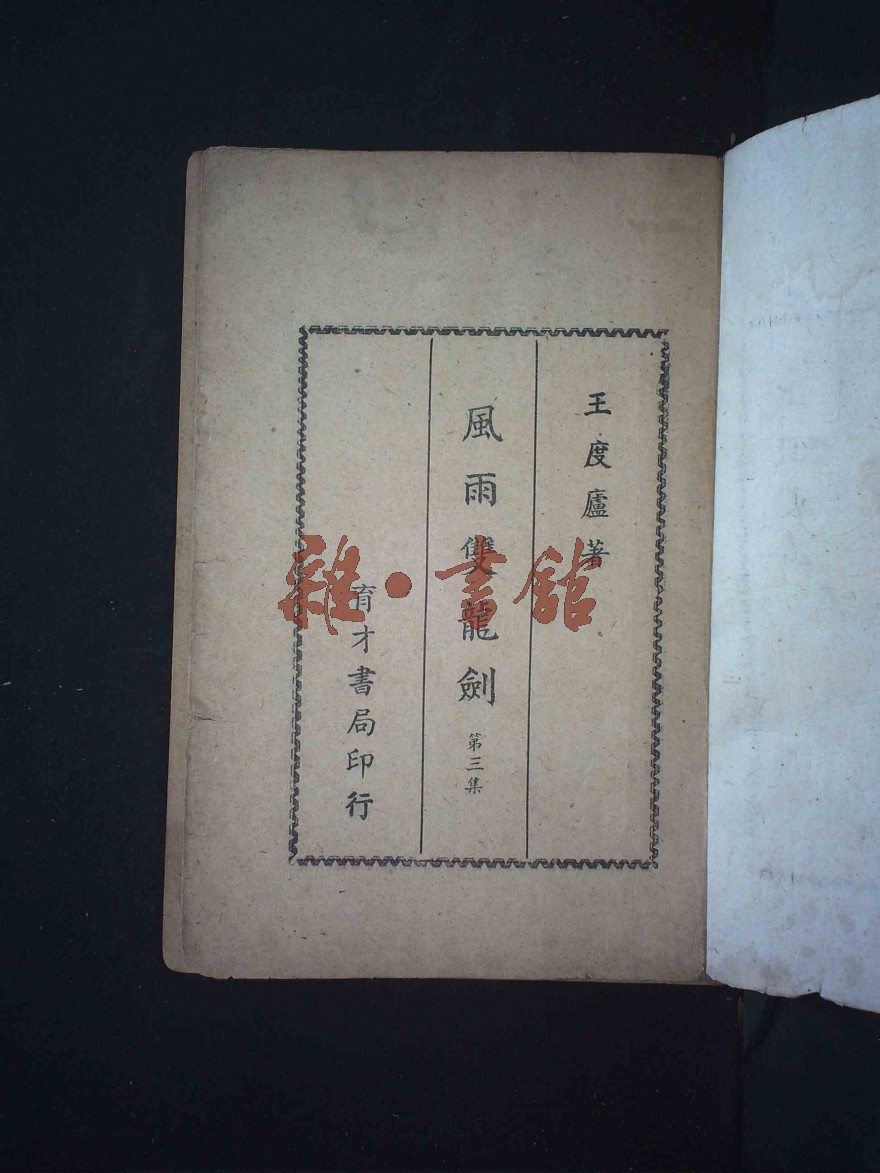 王度廬著
風雨雙龍劍 第三集
育才書局印行
雜·書館